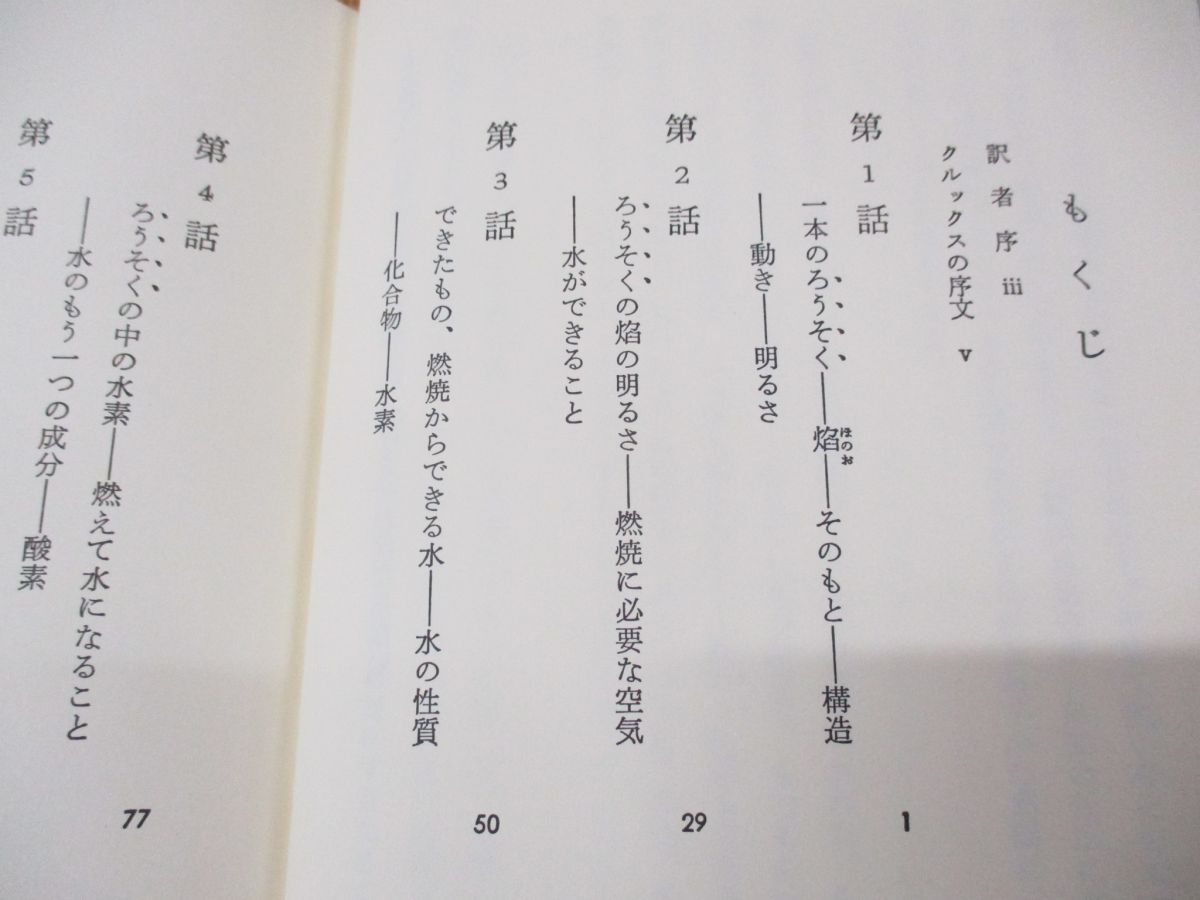 もくじ
訳者序 iii
クルックスの序文 v
第1話
一本のろうそく――焰――そのもと――構造
ほのお
――動き――明るさ
1
第2話
ろうそくの焰の明るさ――燃焼に必要な空気
――水ができること
29
第3話
できたもの、燃焼からできる水――水の性質
――化合物――水素
50
第4話
ろうそくの中の水素――燃えて水になること
――水のもう一つの成分――酸素
77
第5話